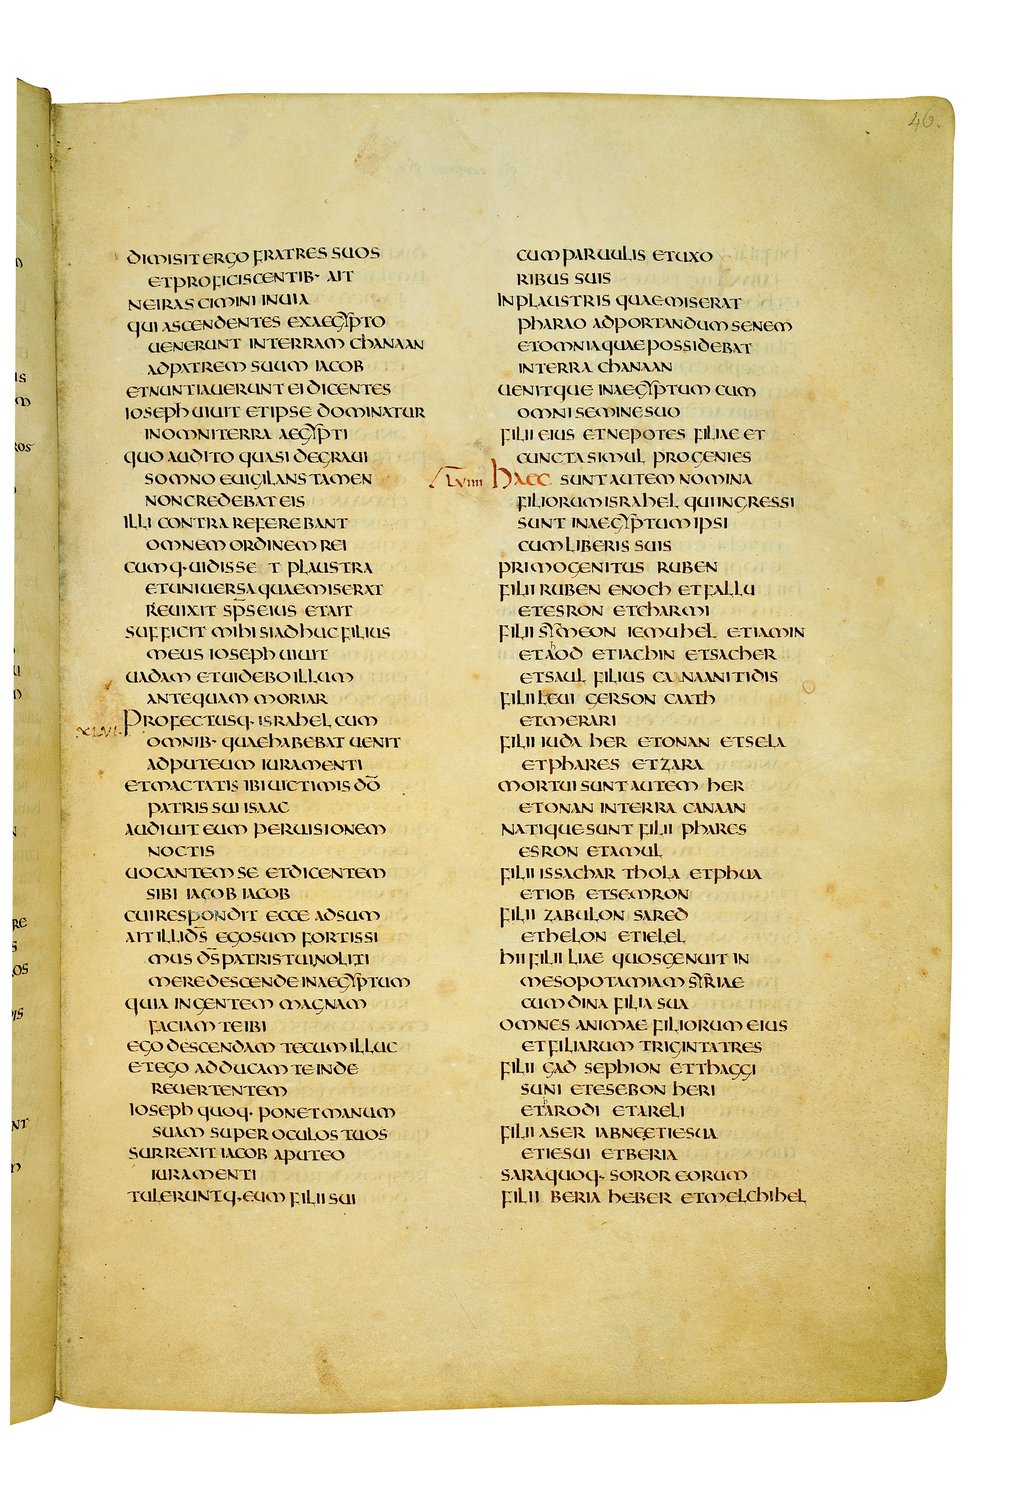 46.
DIMISIT ERGO FRATRES SUOS
ET PROFICISCENTIB· AIT
NE IRASCIMINI IN UIA
QUI ASCENDENTES EX AEGYPTO
UENERUNT IN TERRAM CHANAAN
AD PATREM SUUM IACOB
ET NUNTIAUERUNT EI DICENTES
IOSEPH UIUIT ET IPSE DOMINATUR
IN OMNI TERRA AEGYPTI
QUO AUDITO QUASI DE GRAUI
SOMNO EUIGILANS TAMEN
NON CREDEBAT EIS
ILLI CONTRA REFEREBANT
OMNEM ORDINEM REI
CUMQ· UIDISSET PLAUSTRA
ET UNIUERSA QUAE MISERAT
REUIXIT SP̅S EIUS ET AIT
SUFFICIT MIHI SI ADHUC FILIUS
MEUS IOSEPH UIUIT
UADAM ET UIDEBO ILLUM
ANTEQUAM MORIAR
XLVI· PROFECTUSQ· ISRAHEL CUM
OMNIB· QUAE HABEBAT UENIT
AD PUTEUM IURAMENTI
ET MACTATIS IBI UICTIMIS D̅O̅
PATRIS SUI ISAAC
AUDIUIT EUM PER UISIONEM
NOCTIS
UOCANTEM SE ET DICENTEM
SIBI IACOB IACOB
CUI RESPONDIT ECCE ADSUM
AIT ILLI D̅S̅ EGO SUM FORTISSI
MUS D̅S̅ PATRIS TUI NOLI TI
MERE DESCENDE IN AEGYPTUM
QUIA IN GENTEM MAGNAM
FACIAM TE IBI
EGO DESCENDAM TECUM ILLUC
ET EGO ADDUCAM TE INDE
REUERTENTEM
IOSEPH QUOQ· PONET MANUM
SUAM SUPER OCULOS TUOS
SURREXIT IACOB A PUTEO
IURAMENTI
TULERUNTQ· EUM FILII SUI
CUM PARUULIS ET UXO
RIBUS SUIS
IN PLAUSTRIS QUAE MISERAT
PHARAO AD PORTANDUM SENEM
ET OMNIA QUAE POSSIDEBAT
IN TERRA CHANAAN
UENITQUE IN AEGYPTUM CUM
OMNI SEMINE SUO
FILII EIUS ET NEPOTES FILIAE ET
CUNCTA SIMUL PROGENIES
LVIIII HAEC SUNT AUTEM NOMINA
FILIORUM ISRAHEL QUI INGRESSI
SUNT IN AEGYPTUM IPSI
CUM LIBERIS SUIS
PRIMOGENITUS RUBEN
FILII RUBEN ENOCH ET FALLU
ET ESRON ET CHARMI
FILII SYMEON IEMUHEL ET IAMIN
ET AHOD ET IACHIN ET SACHER
ET SAUL FILIUS CANAANITIDIS
FILII LEUI GERSON CAATH
ET MERARI
FILII IUDA HER ET ONAN ET SELA
ET PHARES ET ZARA
MORTUI SUNT AUTEM HER
ET ONAN IN TERRA CANAAN
NATIQUE SUNT FILII PHARES
ESRON ET AMUL
FILII ISSACHAR THOLA ET PHUA
ET IOB ET SEMRON
FILII ZABULON SARED
ET HELON ET IELEL
HII FILII LIAE QUOS GENUIT IN
MESOPOTAMIAM SYRIAE
CUM DINA FILIA SUA
OMNES ANIMAE FILIORUM EIUS
ET FILIARUM TRIGINTA TRES
FILII GAD SEPHION ET THAGGI
SUNI ET ESEBON HERI
ET ARODI ET ARELI
FILII ASER IABNE ET IESUA
ET IESUI ET BERIA
SARA QUOQ· SOROR EORUM
FILII BERIA HEBER ET MELCHIHEL